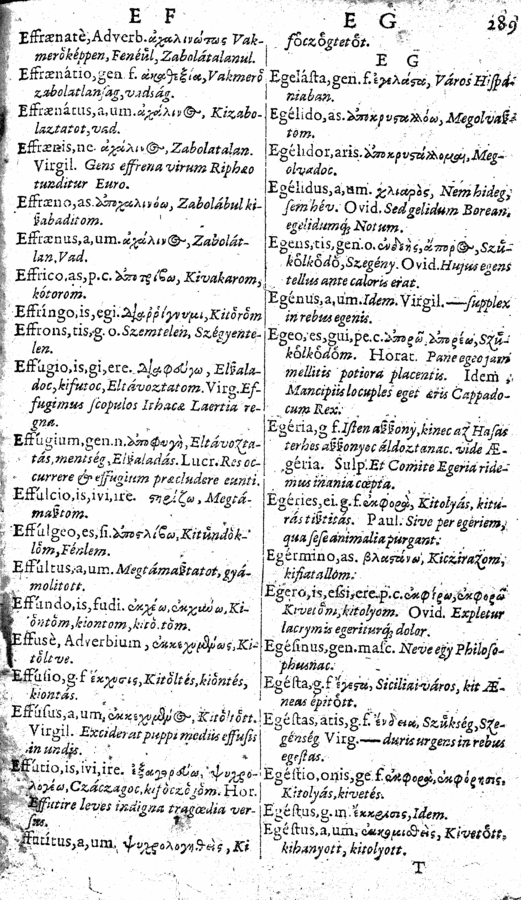 E F
Effrænatè, Adverb. ἀχαλινώτως Vak-
merőképpen, Fenéűl, Zabolátalanul.
Effrænátio, gen. f. Vakmerő
zabolatlanság, vadság.
Effrænátus, a, um. Kizabo-
laztatot, vad.
Effrænis, ne. Zabolatalan.
Virgil. Gens effrena virum Riphæo
tunditur Euro.
Effræno, as. ἀποχαλινόω, Zabolábul ki-
ßabaditom.
Effrænus, a, um. Zabolát-
lan, Vad.
Effrico, as, p. c. Kivakarom,
kótorom.
Effringo, is, egi. Kitőrőm
Effrons, tis, g. o. Szemtelen, Szégyente-
len.
Effugio, is, gi, ere. Elßala-
doc, kifutoc, Eltávoztatom. Virg. Ef-
fugimus scopulos Ithacæ Laertia re-
gna.
Effugium, gen. n. ἀποφυγὴ, Eltávozta-
tás, mentség, Elßaladás. Lucr. Res oc-
currere & effugium præcludere eunti.
Effulcio, is, ivi, ire. στηρίζω, Megtá-
maßtom.
Effúlgeo, es, si. Kitűndők-
lőm, Fénlem.
Effúltus, a, um. Megtámaßtatot, gyá-
molitott.
Effúndo, is, fudi. Ki-
őntőm, kiontom, kitőltőm.
Effusè, Adverbium, Ki-
tőltve.
Effúsio, g. f. ἔκχυσις, Kitőltés, kiőntés,
kiontás.
Effúsus, a, um, Kitőltőtt.
Virgil. Exciderat puppi mediis effusis
in undis.
Effútio, is, ivi, ire.
Czáczagoc, kifőczőgőm. Hor.
Effutire leves indigna tragœdia ver-
sus.
Effutítus, a, um. Ki
E G
289
főczőgtetőt.
E G
Egelásta, gen. f. ἐγελάστα, Város Hispá-
niaban.
Egélido, as. Megolvaßt
tom.
Egélidor, aris. Meg-
olvadoc.
Egélidus, a, um. χλιαρὸς, Nem hideg,
sem hév. Ovid. Sed gelidum Borean,
egelidumq́, Notum.
Egens, tis, gen. o. ἐνδεὴς, Szű-
kőlkődő, Szegény. Ovid. Hujus egens
tellus ante caloris erat.
Egénus, a, um. Idem. Virgil. —supplex
in rebus egenis.
Egeo, es, gui, pe. c. Szű-
kőlkődőm. Horat. Pane egeo jam
mellitis potiora placentis. Idem,
Mancipiis locuples eget æris Cappado-
cum Rex.
Egéria, g. f. Isten aßßony, kinec az Hasas
terhes aßßonyoc áldoztanac. vide Æ-
géria. Sulp. Et Comite Egeria ride-
mus inania cœpta.
Egéries, ei. g. f. Kitolyás, kitu-
rás tißtitás. Paul. Sive per egeriem,
qua sese animalia purgant.
Egérmino, as. βλαστάνω, Kiczirazom,
kifiatallom.
Egero, is, essi, ere. p. c.
Kivetőm, kitolyom. Ovid. Expletur
lacrymis egeriturq́, dolor.
Egésinus, gen. masc. Neve egy Philoso-
phusnac.
Egésta, g. f. ἔγεστα, Siciliai város, kit Æ-
neas épitőtt.
Egéstas, atis, g. f. ἔνδεια, Szűkség, Sze-
génség Virg. — duris urgens in rebus
egestas.
Egéstio, onis, ge. f.
Kitolyás, kivetés.
Egéstus, g. m. Idem.
Egéstus, a, um. Kivetőtt,
kihanyott, kitolyott.
T